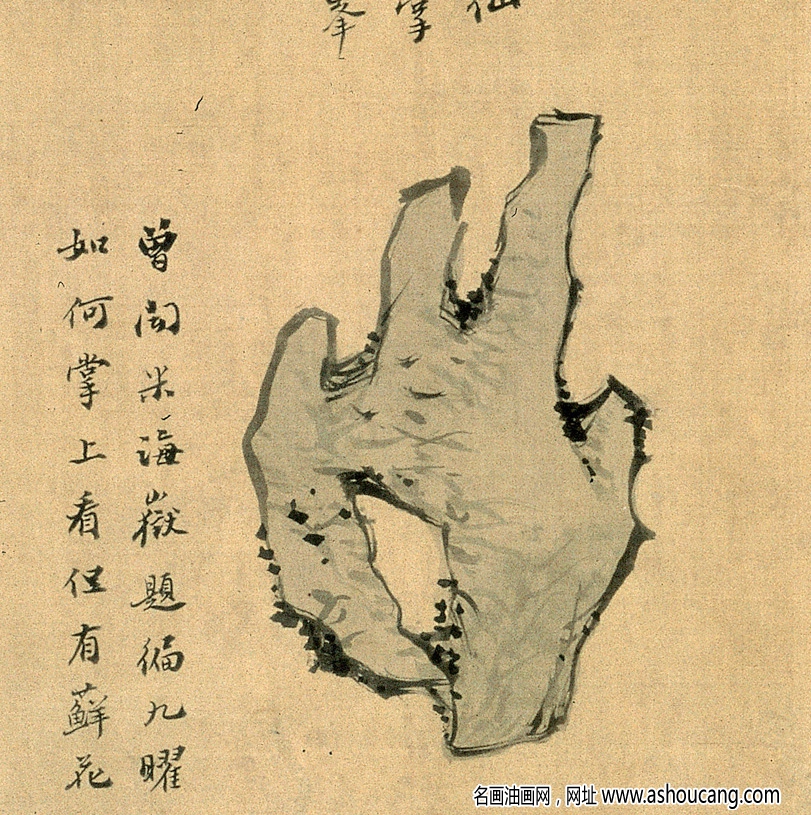 仙
掌
峯
曾聞米海嶽題徧九曜
如何掌上看但有蘚花
名画油画网，网址 www.ashoucang.com